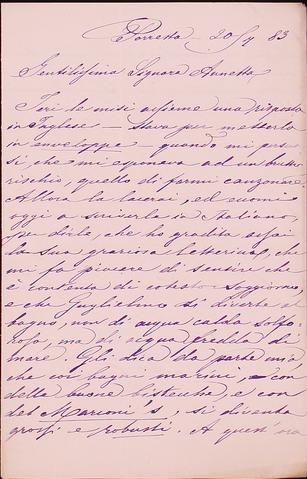 Porretta - 20/7 83
Gentilissima Signora Annetta
Ieri le misi assieme una risposta
in Inglese — stava per metterla
in enveloppe — quando mi pen-
si che mi esponeva ad un brutto
rischio, quello di farmi canzonare
Allora la lacerai, ed eccomi
oggi a scriverla in Italiano,
per dirle, che ho gradita assai
la sua graziosa letterina, che
mi fa piacere di sentire che
è contenta di cotesto soggiorno,
e che Guglielmo si diverte a
bagno, non di acqua calda solfo-
rosa, ma di acqua fredda di
mare. Gli dica da parte mia
che coi bagni marini, e con
della buone bistecche, e con
del Marioni's, si diventa
grossi e robusti. A quest'ora